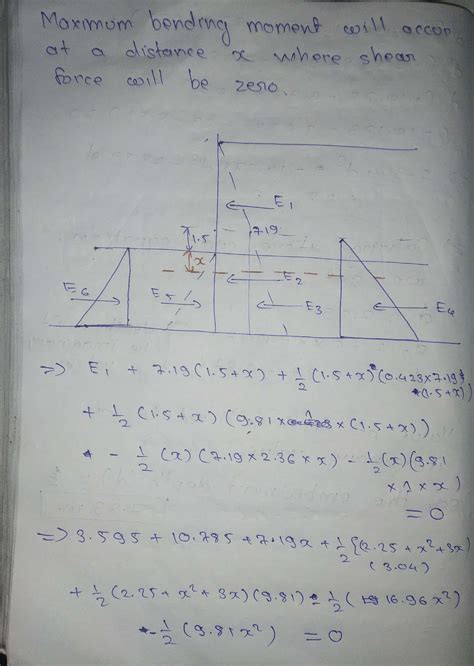 Maximum bending moment will occur
at a distance x where shear
force will be zero.
E1
1.5
7.19
x
E2
E6
E5
E3
E4
=> E1 + 7.19(1.5+x) + 1/2 (1.5+x) (0.423×7.19
*(1.5+x))
+ 1/2 (1.5+x) (9.81 × (1.5+x))
- 1/2 (x) (7.19×2.36×x) - 1/2 (x) (9.81
×1×x)
= 0
=> 3.595 + 10.785 + 7.19x + 1/2 {(2.25+x²+3x)
(3.04)
+ 1/2 (2.25+x²+3x)(9.81) - 1/2 (16.96x²)
- 1/2 (9.81x²) = 0